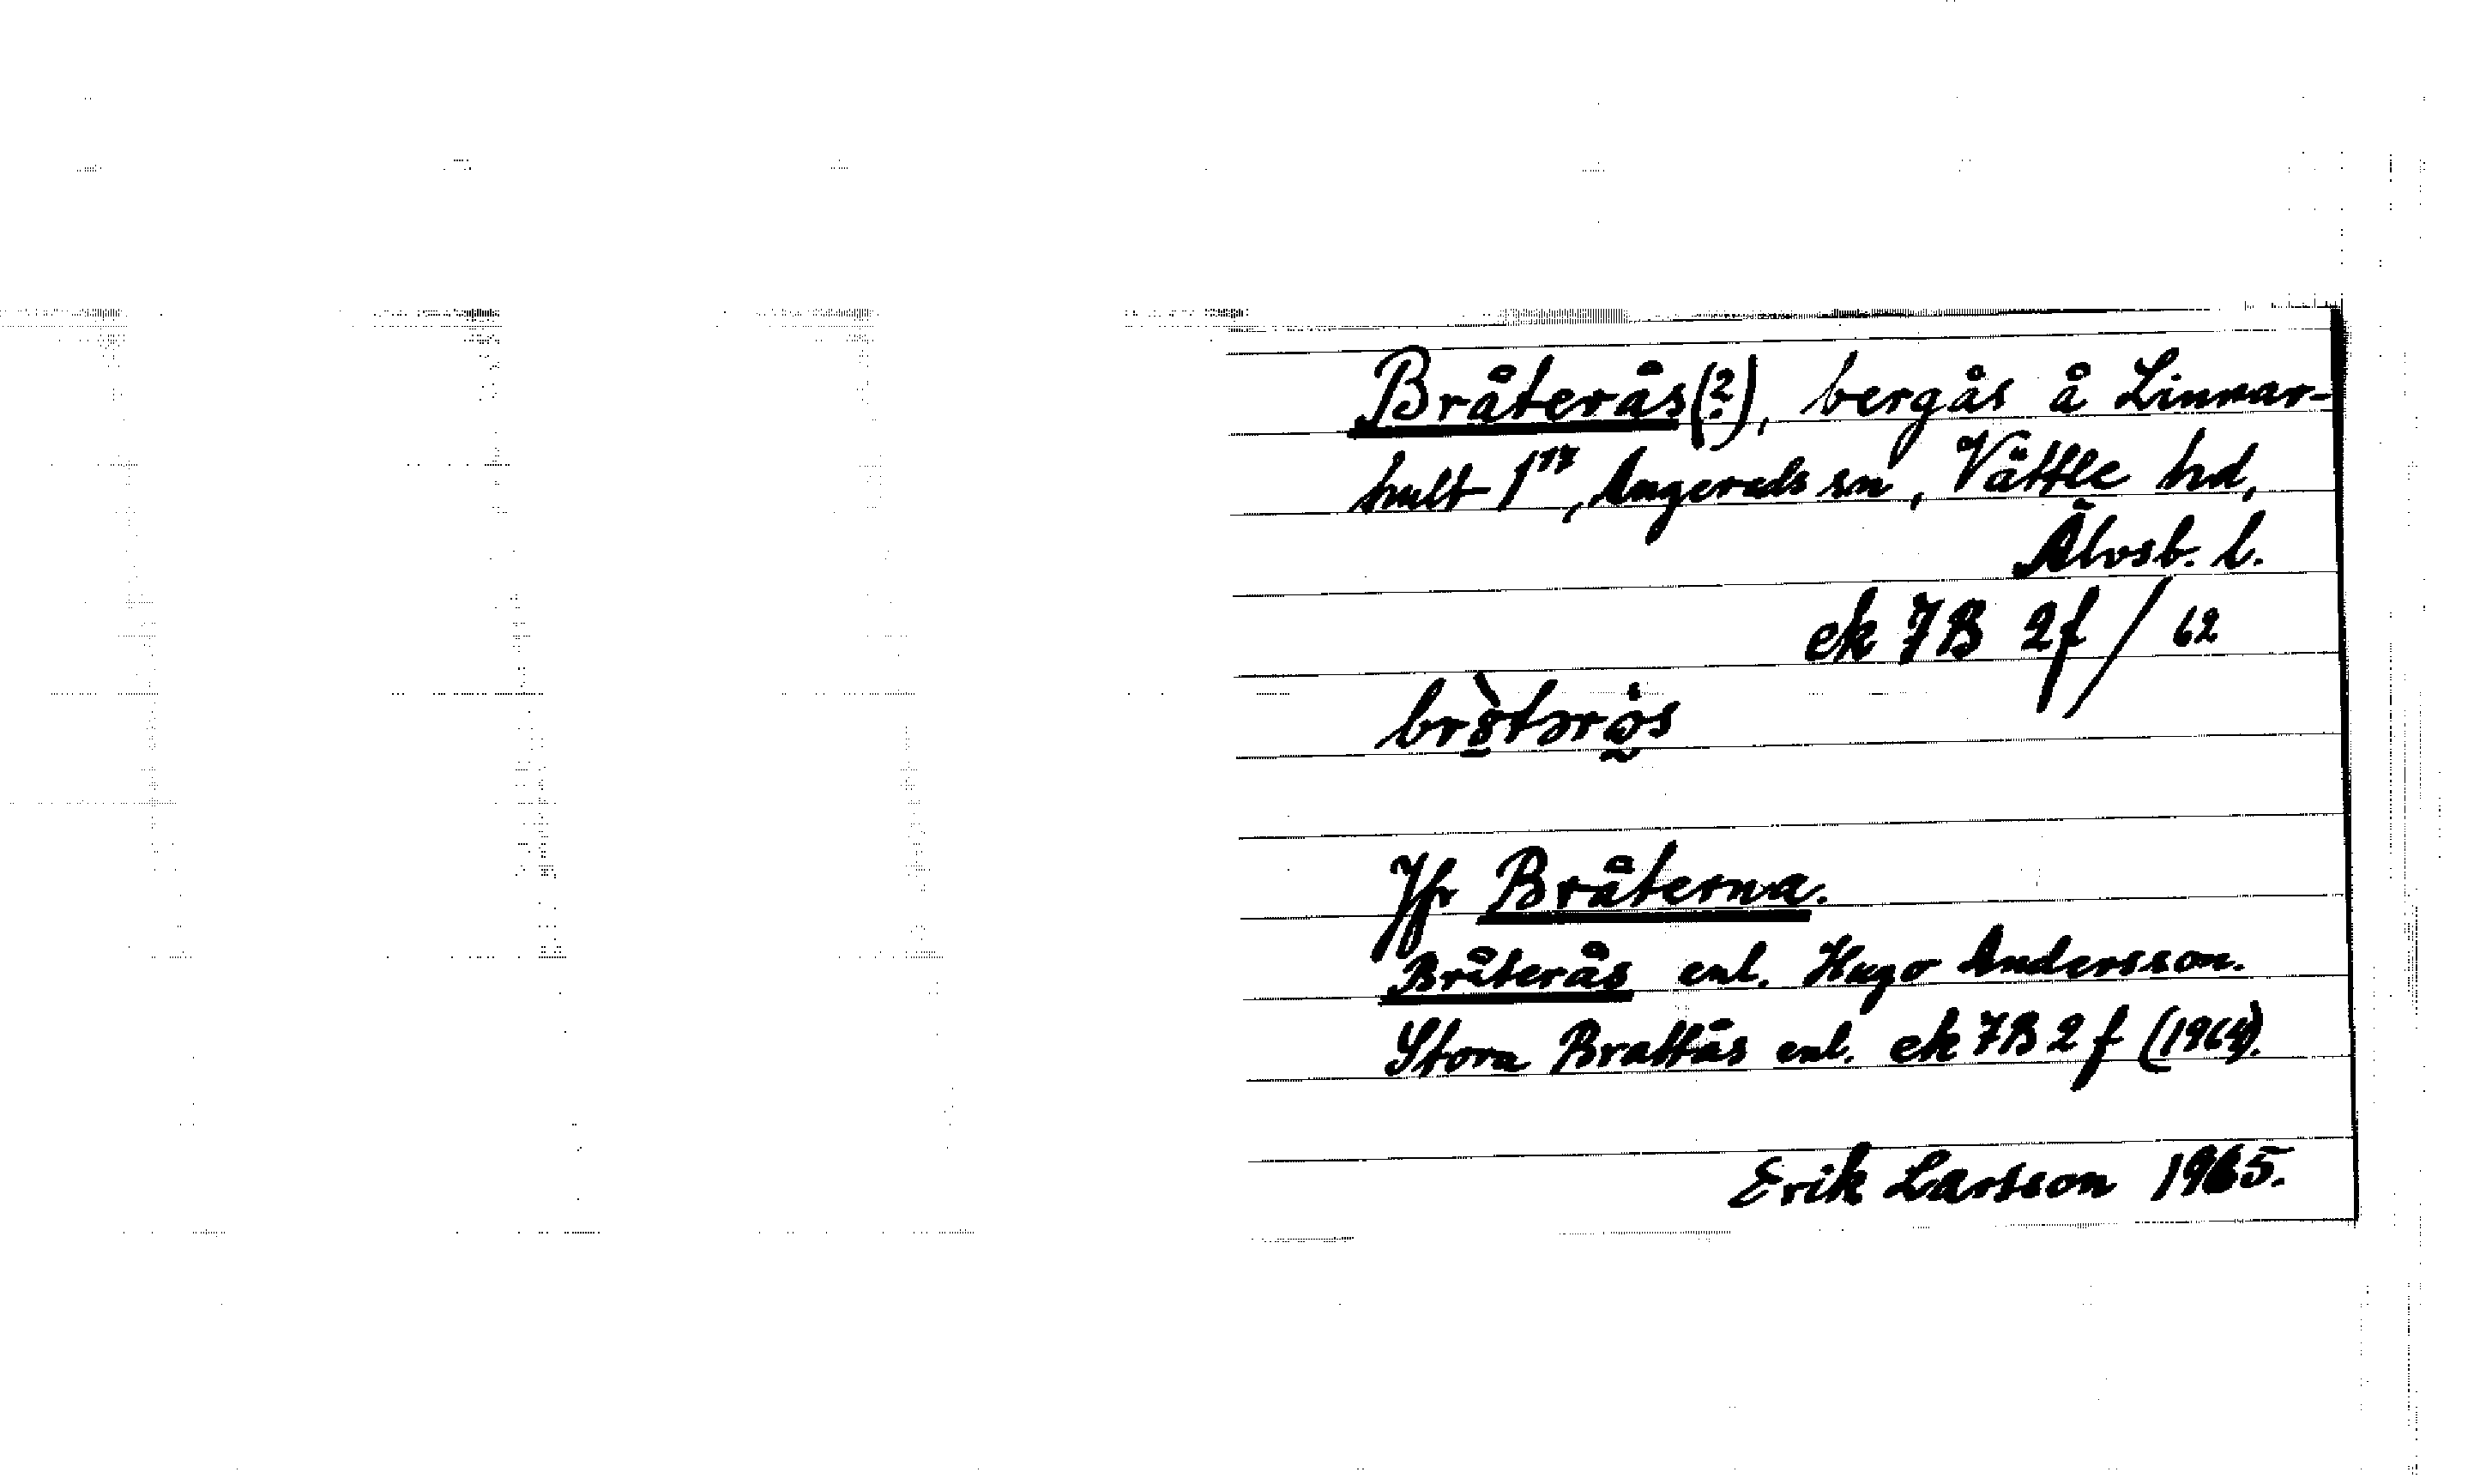 Bråterås(?), bergås å Linnar-
hult 1¹⁷, Angereds sn, Vättle hd,
Älvsb. l.
ek 7B 2f / 62
Jfr Bråterna.
Bråterås enl. Hugo Andersson.
Stora Brattås enl. ek 7B 2f (1964).
Erik Larsson 1965.